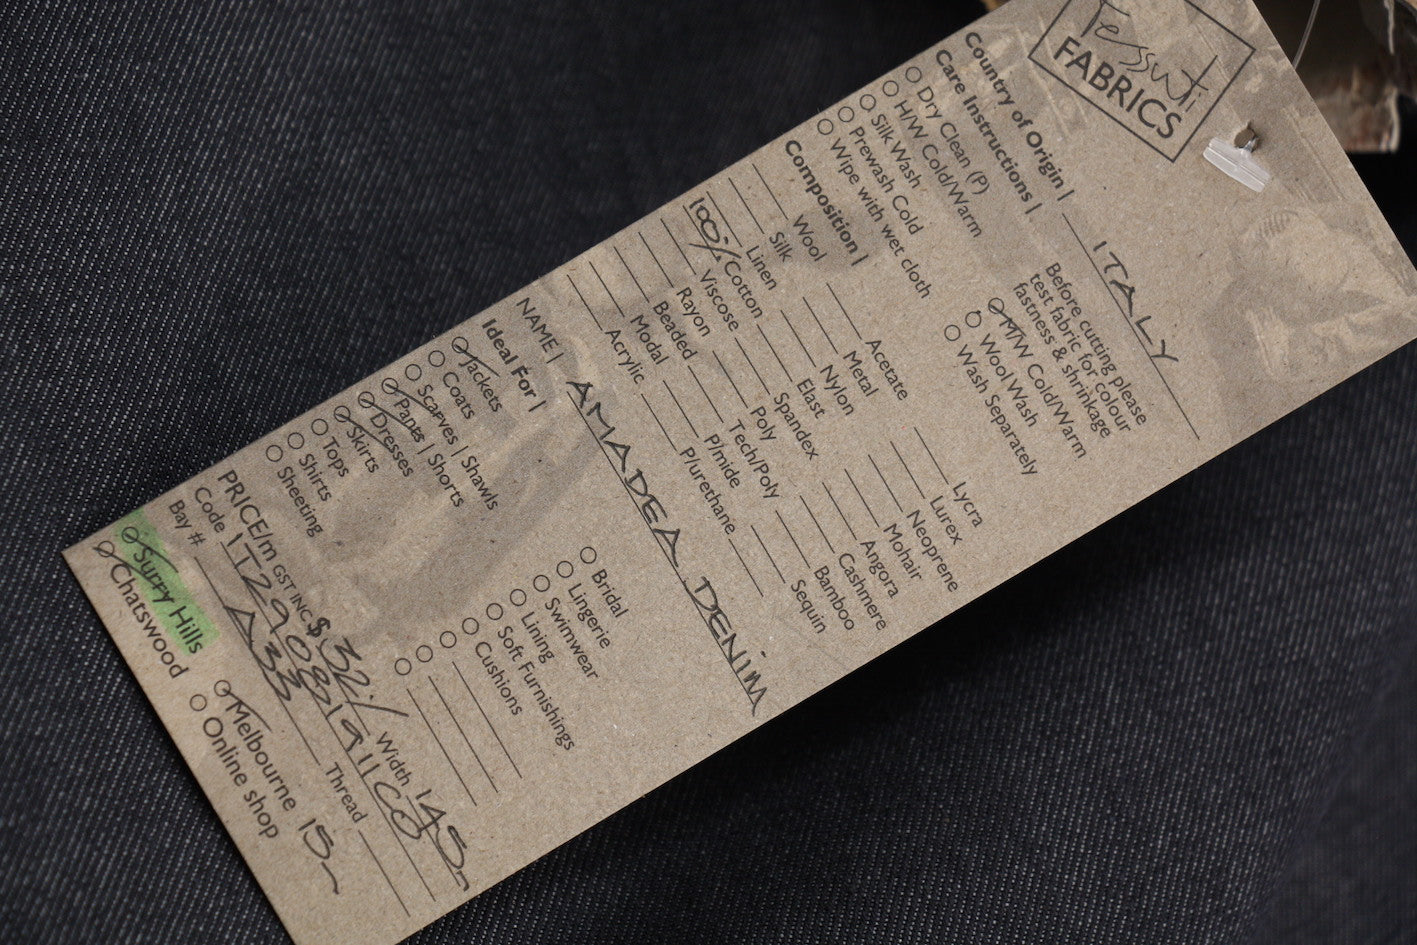 Tessuti
FABRICS
Country of Origin | ITALY
Care Instructions |
Dry Clean (P)
H/W Cold/Warm
Silk Wash
Prewash Cold
Wipe with wet cloth
Before cutting please
test fabric for colour
fastness & shrinkage
M/W Cold/Warm
Wool Wash
Wash Separately
Composition |
Wool Acetate Lycra
Silk Metal Lurex
Linen Nylon Neoprene
100% Cotton Elast Mohair
Viscose Spandex Angora
Rayon Poly Cashmere
Beaded Tech/Poly Bamboo
Modal P/mide Sequin
Acrylic P/urethane
NAME | AMADEA DENIM
Ideal For |
Jackets
Coats
Scarves | Shawls
Pants | Shorts
Dresses
Skirts
Tops
Shirts
Sheeting
Bridal
Lingerie
Swimwear
Lining
Soft Furnishings
Cushions
PRICE/m GST INC $ 32./ Width 145
Code
Bay # A33 Thread
Surry Hills Melbourne 15
Chatswood Online shop